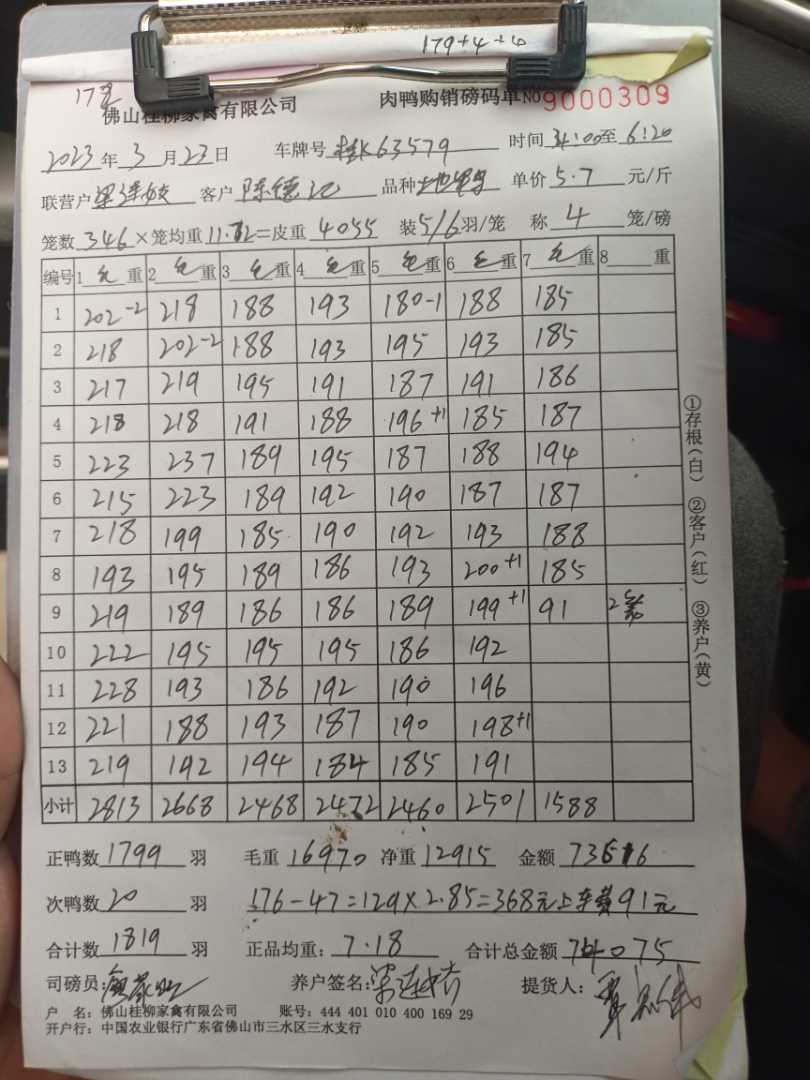 179+4+6
佛山桂柳家禽有限公司 肉鸭购销磅码单 No 9000309
2023 年 3 月 23 日 车牌号 桂K63579 时间 至 6:20
联营户 客户 陈德 品种 单价 5.7 元/斤
笼数 346 ×笼均重 11.72 =皮重 4055 装 5/6 羽/笼 称 4 笼/磅
编号 1 毛 重 2 毛 重 3 毛 重 4 毛 重 5 毛 重 6 毛 重 7 毛 重 8 重
1 202-2 218 188 193 180-1 188 185
2 218 202-2 188 193 195 193 185
3 217 219 195 191 187 191 186
4 218 218 191 188 196+1 185 187
5 223 237 189 195 187 188 194
6 215 223 189 192 190 187 187
7 218 199 185 190 192 193 188
8 193 195 189 186 193 200+1 185
9 219 189 186 186 189 199+1 91 2笼
10 222 195 195 195 186 192
11 228 193 186 192 190 196
12 221 188 193 187 190 198+1
13 219 192 194 184 185 191
小计 2813 2668 2468 2472 2460 2501 1588
①存根(白) ②客户(红) ③养户(黄)
正鸭数 1799 羽 毛重 16970 净重 12915 金额 73616
次鸭数 20 羽 176-47=129×2.85=368元上车费91元
合计数 1819 羽 正品均重: 7.18 合计总金额 74075
司磅员: 养户签名: 提货人:
户 名: 佛山桂柳家禽有限公司 账号: 444 401 010 400 169 29
开户行: 中国农业银行广东省佛山市三水区三水支行